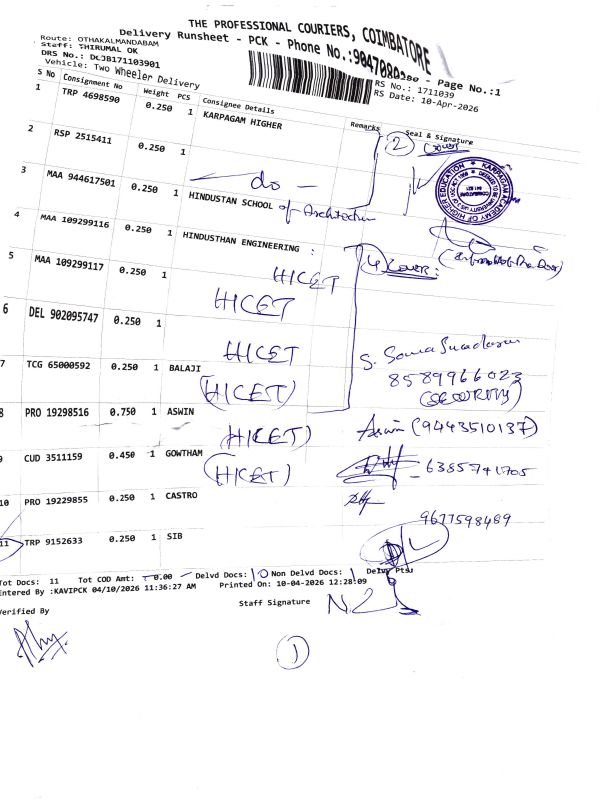 THE PROFESSIONAL COURIERS, COIMBATORE
Delivery Runsheet - PCK - Phone No.:9047080 - Page No.:1
Route: OTHAKALMANDABAM
Staff: THIRUMAL OK
RS No.: 1711039
DRS No.: DLJB171103901
RS Date: 10-Apr-2026
Vehicle: Two Wheeler Delivery
S No Consignment No Weight PCS Consignee Details Remarks Seal & Signature
1 TRP 4698590 0.250 1 KARPAGAM HIGHER
2 Cover
2 RSP 2515411 0.250 1
do
3 MAA 944617501 0.250 1 HINDUSTAN SCHOOL of Architecture
KARPAGAM ACADEMY OF HIGHER EDUCATION
COIMBATORE
641 021
4 MAA 109299116 0.250 1 HINDUSTHAN ENGINEERING :
4 Cover:
5 MAA 109299117 0.250 1 HICET
HICET
6 DEL 902095747 0.250 1
HICET
7 TCG 65000592 0.250 1 BALAJI
(HICET)
8589966023
(SECURITY)
8 PRO 19298516 0.750 1 ASWIN
(HICET) Aswin (9443510137)
9 CUD 3511159 0.450 1 GOWTHAM
(HICET) 6385741705
10 PRO 19229855 0.250 1 CASTRO
9677598489
11 TRP 9152633 0.250 1 SIB
Tot Docs: 11 Tot COD Amt: 0.00 Delvd Docs: 10 Non Delvd Docs: 1 Delvy Pts:
Entered By :KAVIPCK 04/10/2026 11:36:27 AM Printed On: 10-04-2026 12:28:09
Verified By Staff Signature
1